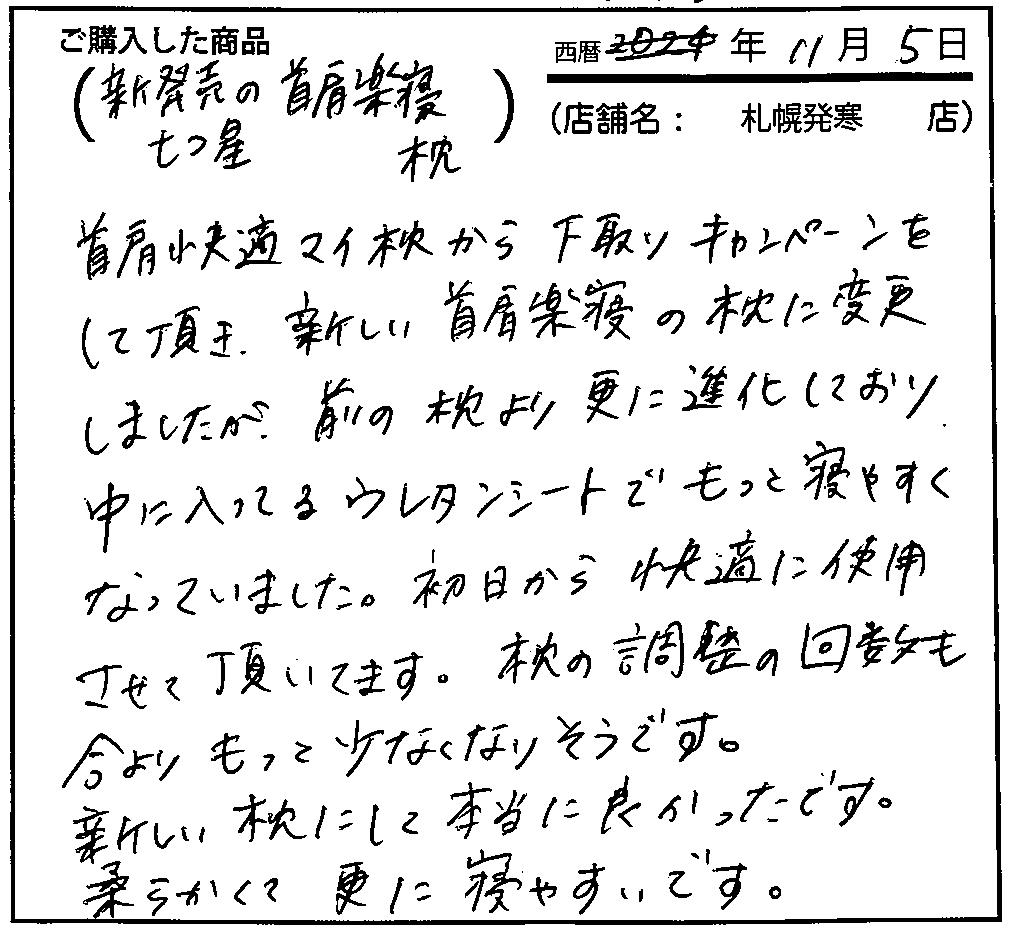 ご購入した商品
西暦 2024 年 11 月 5 日
(新発売の 首肩楽寝
七つ星 枕)
(店舗名: 札幌発寒 店)
首肩快適マイ枕から 下取りキャンペーンを
して頂き、新しい 首肩楽寝の枕に変更
しましたが、前の枕より更に進化しており、
中に入ってるウレタンシートでもっと寝やすく
なっていました。初日から快適に使用
させて頂いてます。枕の調整の回数も
今よりもっと少なくなりそうです。
新しい枕にして本当に良かったです。
柔らかくて更に寝やすいです。